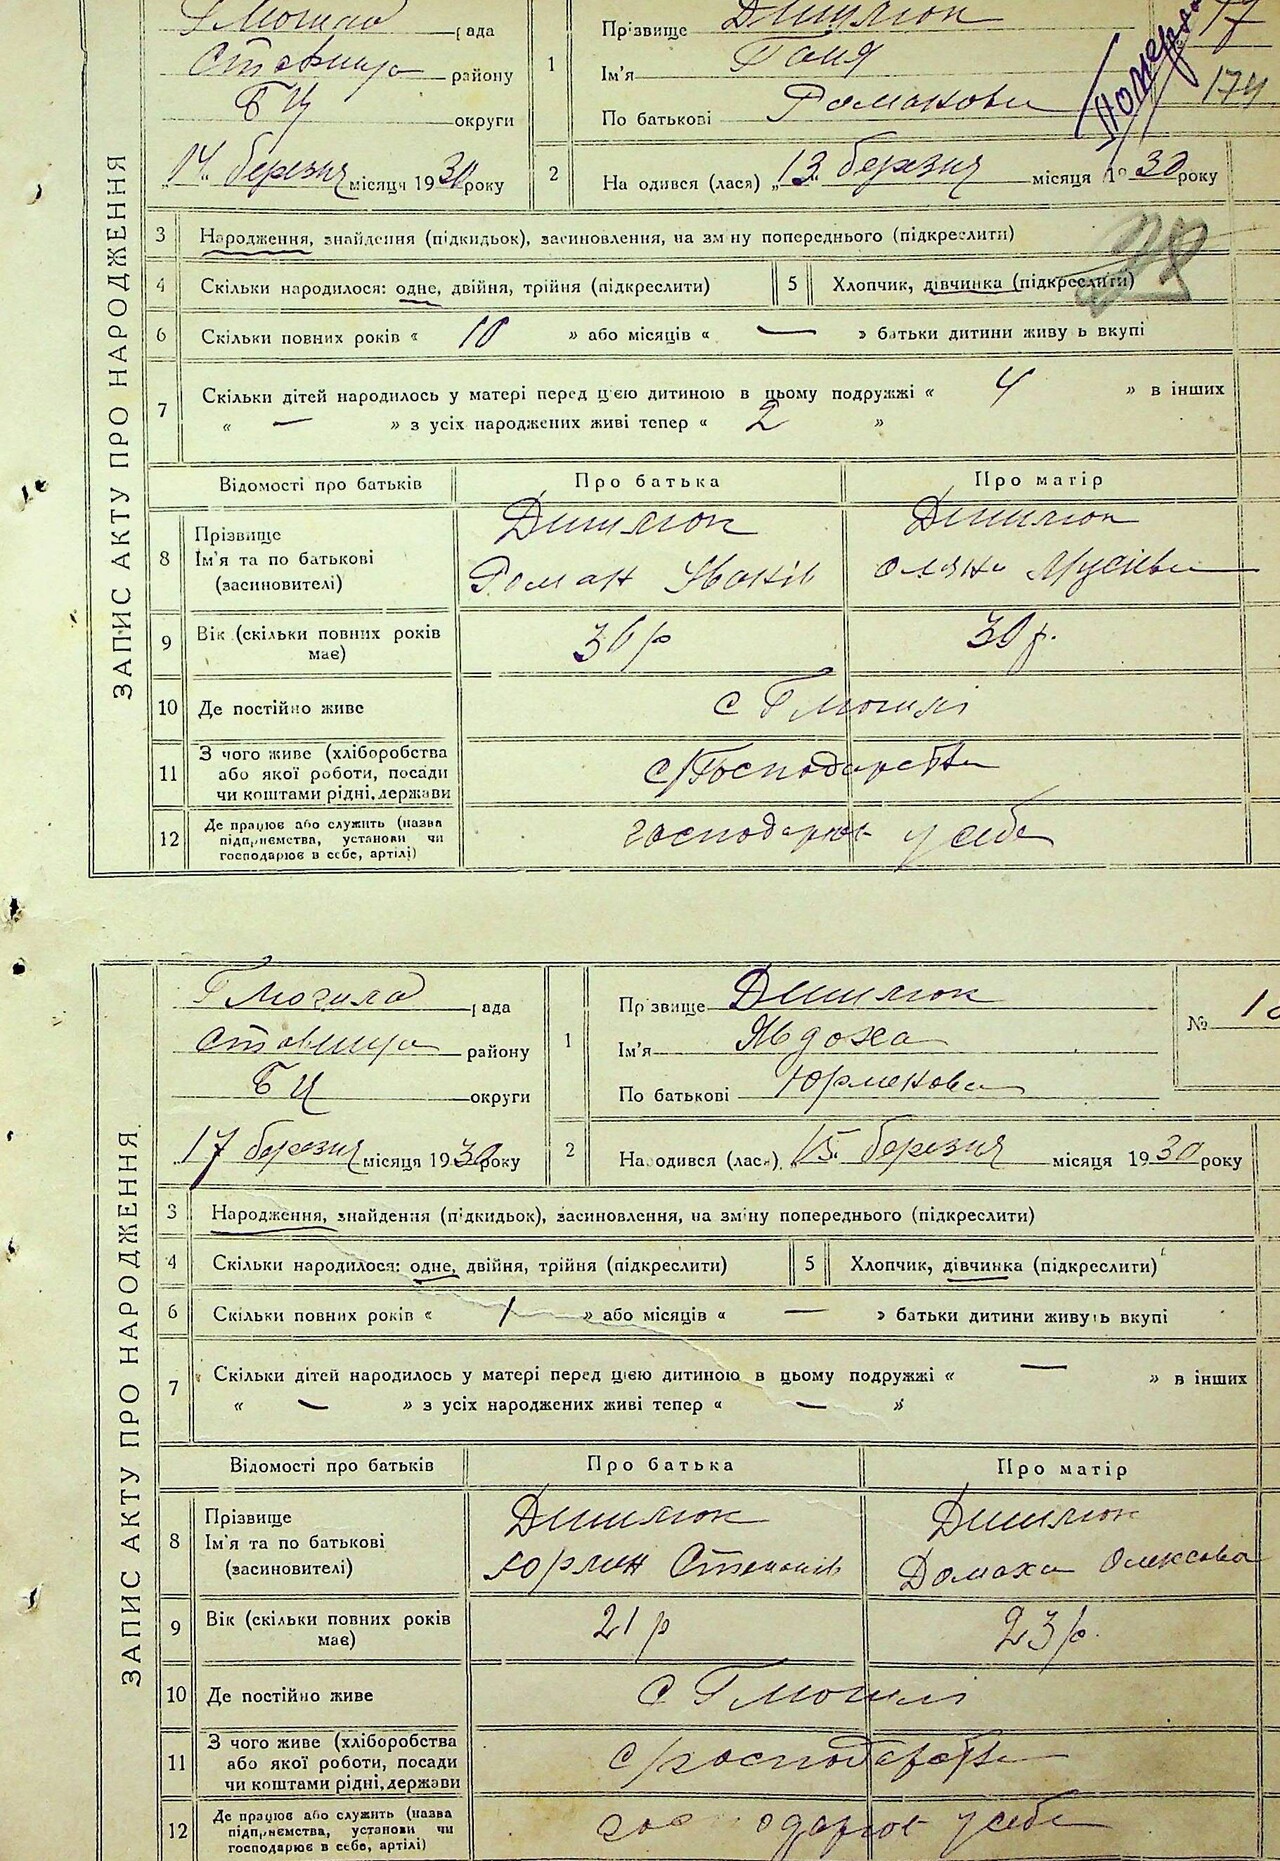 ЗАПИС АКТУ ПРО НАРОДЖЕННЯ
рада
Ставище району
БЦ округи
"14" березня місяця 1930 року
1 Прізвище Дишлюк
Ім'я Ганя
По батькові Романова
17
174
2 На одився (лася) „13" березня місяця 1930 року
3 Народження, знайдення (підкидьок), засиновлення, на зміну попереднього (підкреслити)
4 Скільки народилося: одне, двійня, трійня (підкреслити)
5 Хлопчик, дівчинка (підкреслити)
6 Скільки повних років « 10 » або місяців « — » батьки дитини живу ь вкупі
7 Скільки дітей народилось у матері перед цією дитиною в цьому подружжі « 4 » в інших
« — » з усіх народжених живі тепер « 2 »
Відомості про батьків Про батька Про матір
8 Прізвище
Ім'я та по батькові
(засиновителі)
Дишлюк
Роман Іванів
Дишлюк
Оляна Мусієва
9 Вік (скільки повних років
має)
36 р 30 р.
10 Де постійно живе с Г Могилі
11 З чого живе (хліборобства
або якої роботи, посади
чи коштами рідні, держави
с/Господарства
12 Де працює або служить (назва
підприємства, установи чи
господарює в себе, артілі)
господарює у себе
ЗАПИС АКТУ ПРО НАРОДЖЕННЯ
Г Могила рада
Ставище району
БЦ округи
"17 березня місяця 1930 року
1 Прізвище Дишлюк
Ім'я Явдоха
По батькові Юрменова
№
2 На одився (лася) „15" березня місяця 1930 року
3 Народження, знайдення (підкидьок), засиновлення, на зміну попереднього (підкреслити)
4 Скільки народилося: одне, двійня, трійня (підкреслити)
5 Хлопчик, дівчинка (підкреслити)
6 Скільки повних років « 1 » або місяців « — » батьки дитини живуть вкупі
7 Скільки дітей народилось у матері перед цією дитиною в цьому подружжі « — » в інших
« — » з усіх народжених живі тепер « — »
Відомості про батьків Про батька Про матір
8 Прізвище
Ім'я та по батькові
(засиновителі)
Дишлюк
Юрмен Степанів
Дишлюк
Домаха Олексова
9 Вік (скільки повних років
має)
21 р 23 р.
10 Де постійно живе с Г Могилі
11 З чого живе (хліборобства
або якої роботи, посади
чи коштами рідні, держави
с/господарства
12 Де працює або служить (назва
підприємства, установи чи
господарює в себе, артілі)
господарює у себе